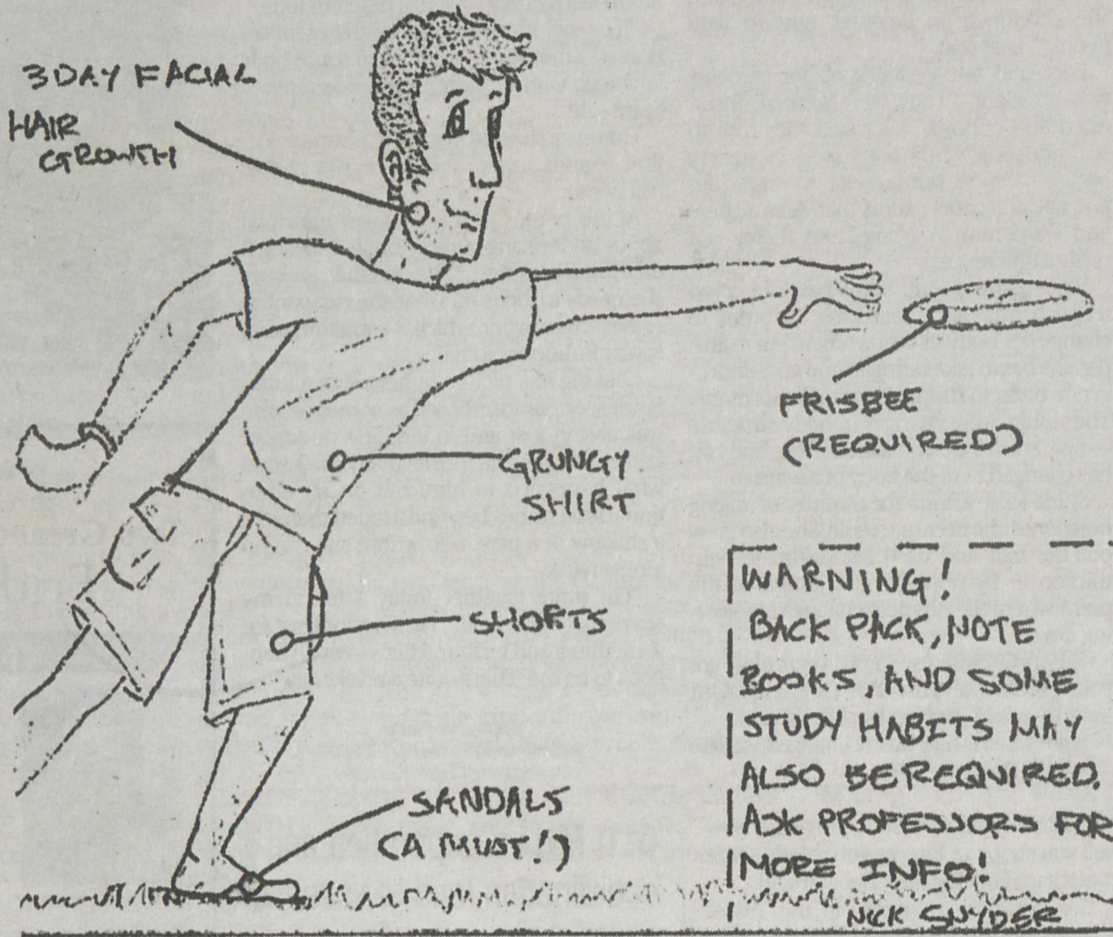 3 DAY FACIAL
HAIR
GROWTH
FRISBEE
(REQUIRED)
GRUNGY
SHIRT
SHORTS
SANDALS
(A MUST!)
WARNING!
BACK PACK, NOTE
BOOKS, AND SOME
STUDY HABITS MAY
ALSO BE REQUIRED.
ASK PROFESSORS FOR
MORE INFO!
NICK SNYDER